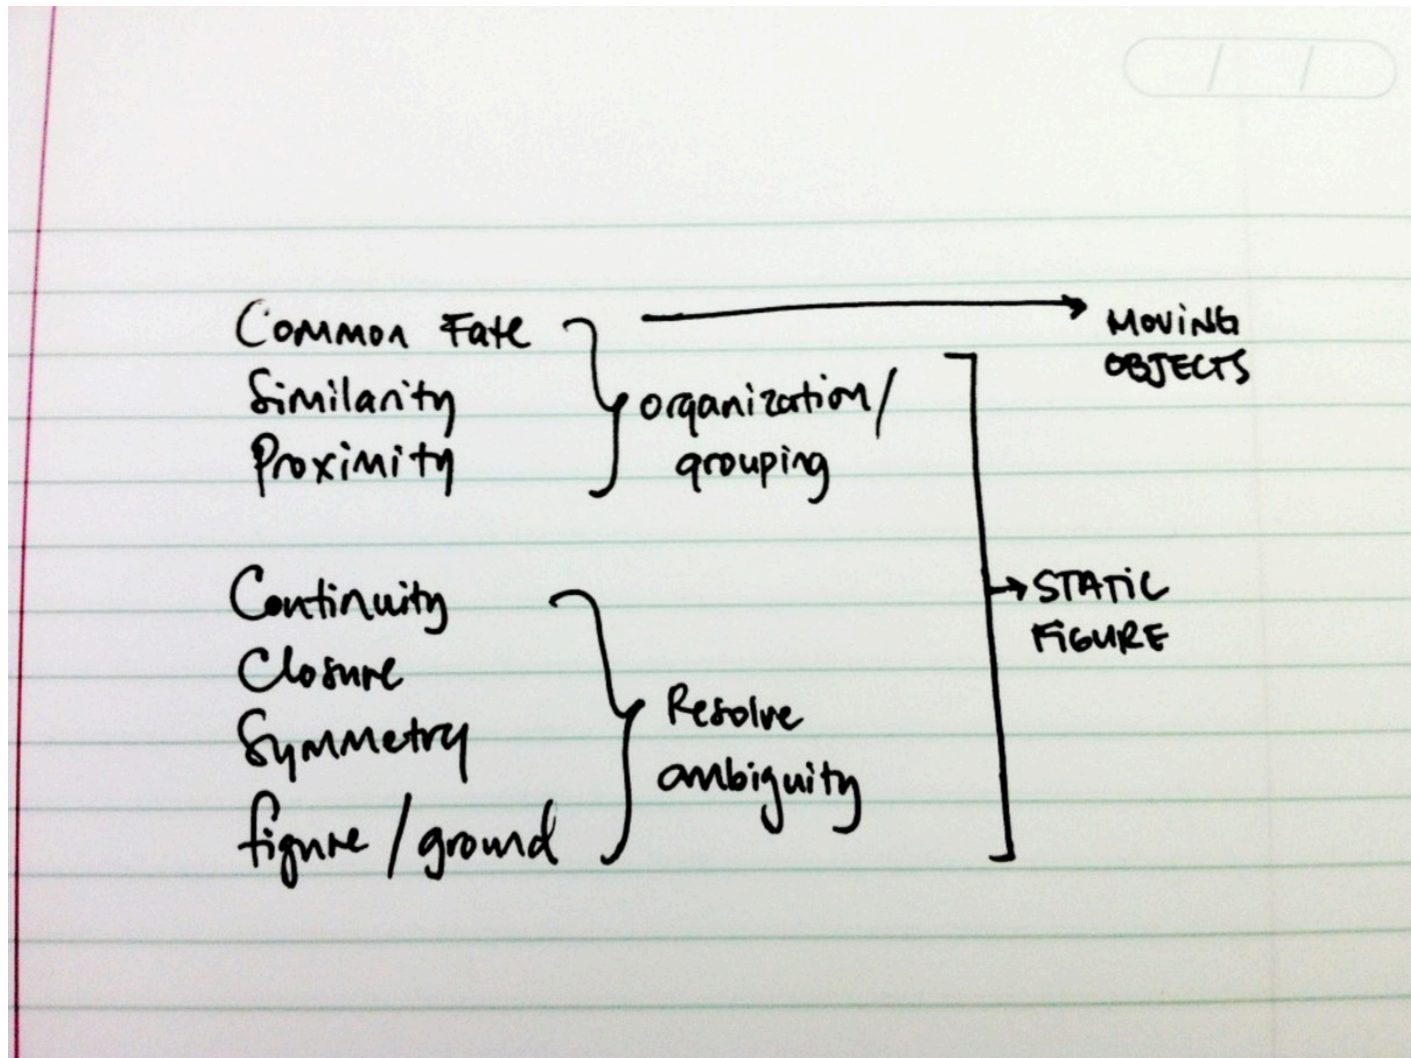 Common Fate
Similarity
Proximity
organization/
grouping
MOVING
OBJECTS
Continuity
Closure
Symmetry
figure / ground
Resolve
ambiguity
STATIC
FIGURE